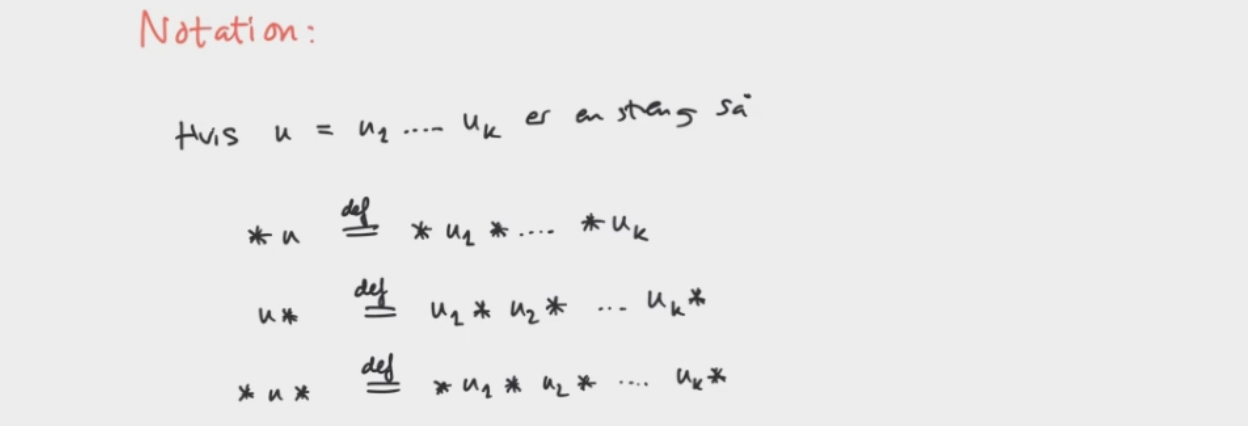 Notation:
Hvis u = u₁ .... uₖ er en streng så
*u def= *u₁ * .... *uₖ
u* def= u₁ * u₂ * ... uₖ*
*u* def= *u₁ * u₂ * .... uₖ*